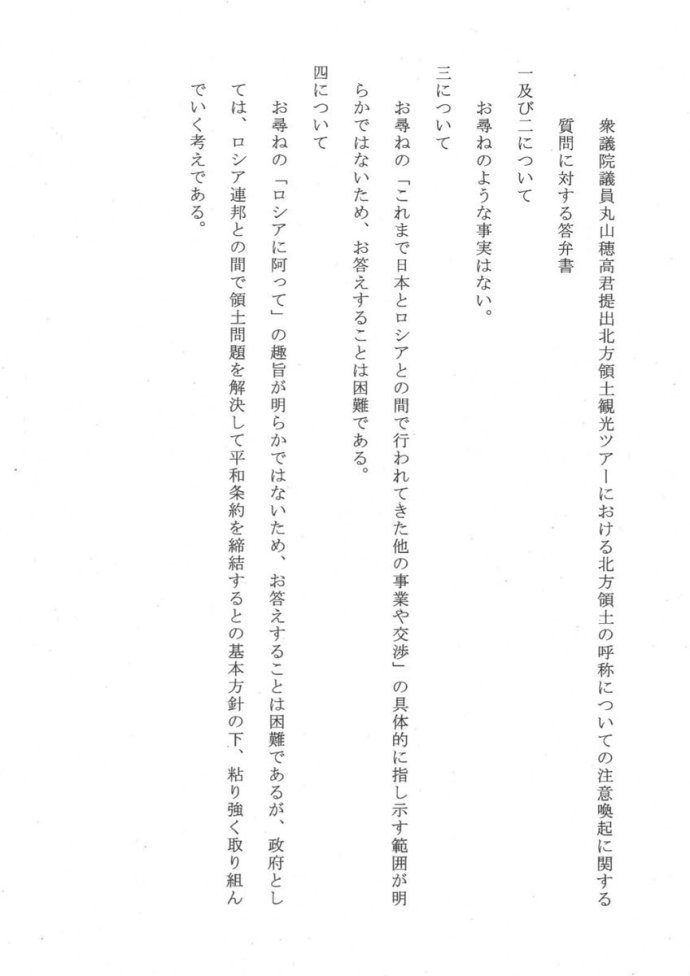 衆議院議員丸山穂高君提出北方領土観光ツアーにおける北方領土の呼称についての注意喚起に関する
質問に対する答弁書
一及び二について
お尋ねのような事実はない。
三について
お尋ねの「これまで日本とロシアとの間で行われてきた他の事業や交渉」の具体的に指し示す範囲が明
らかではないため、お答えすることは困難である。
四について
お尋ねの「ロシアに阿って」の趣旨が明らかではないため、お答えすることは困難であるが、政府とし
ては、ロシア連邦との間で領土問題を解決して平和条約を締結するとの基本方針の下、粘り強く取り組ん
でいく考えである。